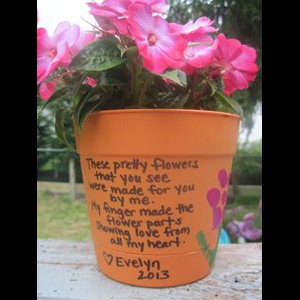 These pretty flowers
that you see
were made for you
by me.
My finger made the
flower parts
Showing love from
all my heart.
♡ Evelyn
2013